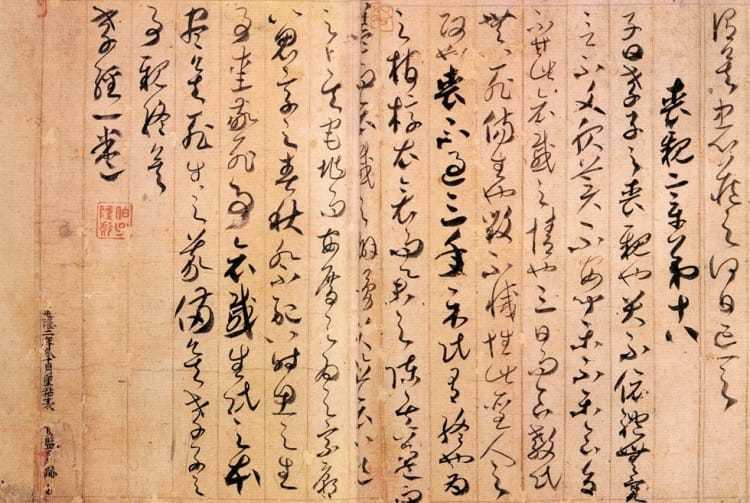 謂矣忠心藏之何日忘之
喪親章第十八
子曰孝子之喪親也哭不偯禮無容
言不文服美不安聞樂不樂食旨
不甘此哀慼之情也三日而食教民
無以死傷生也毀不滅性此聖人之
政也喪不過三年示民有終也為
之棺椁衣衾而舉之陳其簠簋而
哀慼之擗踊哭泣哀以送
之卜其宅兆而安厝之為之宗廟
以鬼享之春秋祭祀以時思之生
事愛敬死事哀慼生民之本
盡矣死生之義備矣孝子之
事親終矣
孝經一卷
建隆二年冬十月重粘表賀監墨跡